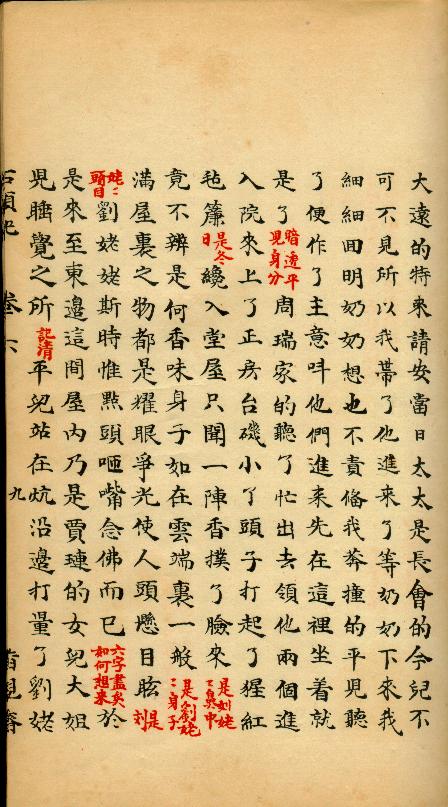 大遠的特来請安當日太太是長會的今兒不
可不見所以我帶了他進来了等奶奶下来我
細細回明奶奶想也不責俻我莽撞的平兒聽
了便作了主意叫他們進来先在這裡坐着就
是了暗透平兒身分周瑞家的聽了忙出去領他兩個進
入院来上了正房台磯小了頭子打起了猩紅
毡簾是冬日纔入堂屋只聞一陣香撲了臉来是刘姥姥鼻中
竟不辨是何香味身子如在雲端裏一般是劉姥姥身子
满屋裏之物都是耀眼爭光使人頭懸目眩是刘
姥姥頭目劉姥姥斯時惟點頭咂嘴念佛而已六字盡矣如何想来於
是来至東邊這間屋內乃是賈璉的女兒大姐
兒睡覺之所記清平兒站在炕沿邊打量了劉姥
石頭記 卷六 九